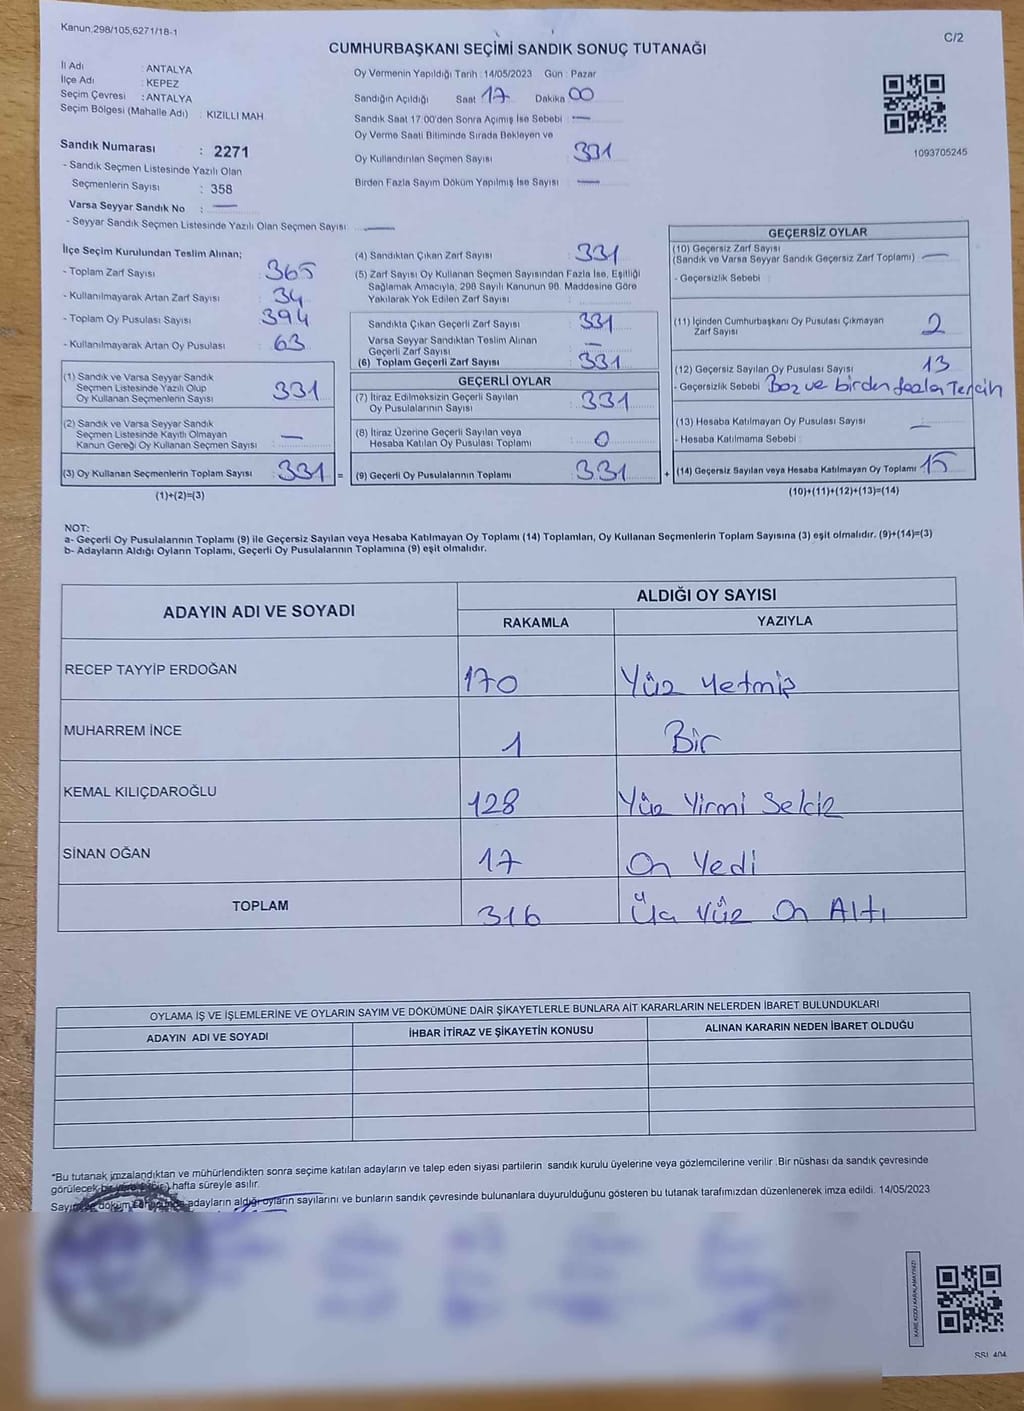 Kanun,298/105,6271/18-1
C/2
CUMHURBAŞKANI SEÇİMİ SANDIK SONUÇ TUTANAĞI
İl Adı : ANTALYA
İlçe Adı : KEPEZ
Seçim Çevresi : ANTALYA
Seçim Bölgesi (Mahalle Adı) : KIZILLI MAH
Sandık Numarası : 2271
- Sandık Seçmen Listesinde Yazılı Olan
Seçmenlerin Sayısı : 358
Varsa Seyyar Sandık No : —
- Seyyar Sandık Seçmen Listesinde Yazılı Olan Seçmen Sayısı : —
Oy Vermenin Yapıldığı Tarih : 14/05/2023 Gün : Pazar
Sandığın Açıldığı Saat 17 Dakika 00
Sandık Saat 17:00'den Sonra Açımış İse Sebebi : —
Oy Verme Saati Bitiminde Sırada Bekleyen ve
Oy Kullandırılan Seçmen Sayısı : 331
Birden Fazla Sayım Döküm Yapılmış İse Sayısı : —
1093705245
İlçe Seçim Kurulundan Teslim Alınan;
- Toplam Zarf Sayısı : 365
- Kullanılmayarak Artan Zarf Sayısı : 34
- Toplam Oy Pusulası Sayısı : 394
- Kullanılmayarak Artan Oy Pusulası : 63
(1) Sandık ve Varsa Seyyar Sandık
Seçmen Listesinde Yazılı Olup
Oy Kullanan Seçmenlerin Sayısı : 331
(2) Sandık ve Varsa Seyyar Sandık
Seçmen Listesinde Kayıtlı Olmayan
Kanun Gereği Oy Kullanan Seçmen Sayısı : —
(3) Oy Kullanan Seçmenlerin Toplam Sayısı : 331 =
(1)+(2)=(3)
(4) Sandıktan Çıkan Zarf Sayısı : 331
(5) Zarf Sayısı Oy Kullanan Seçmen Sayısından Fazla İse, Eşitliği
Sağlamak Amacıyla, 298 Sayılı Kanunun 98. Maddesine Göre
Yakılarak Yok Edilen Zarf Sayısı :
Sandıkta Çıkan Geçerli Zarf Sayısı : 331
Varsa Seyyar Sandıktan Teslim Alınan
Geçerli Zarf Sayısı : —
(6) Toplam Geçerli Zarf Sayısı : 331
GEÇERLİ OYLAR
(7) İtiraz Edilmeksizin Geçerli Sayılan
Oy Pusulalarının Sayısı : 331
(8) İtiraz Üzerine Geçerli Sayılan veya
Hesaba Katılan Oy Pusulası Toplamı : 0
(9) Geçerli Oy Pusulalarının Toplamı : 331 +
GEÇERSİZ OYLAR
(10) Geçersiz Zarf Sayısı
(Sandık ve Varsa Seyyar Sandık Geçersiz Zarf Toplamı) : —
- Geçersizlik Sebebi :
(11) İçinden Cumhurbaşkanı Oy Pusulası Çıkmayan
Zarf Sayısı : 2
(12) Geçersiz Sayılan Oy Pusulası Sayısı : 13
- Geçersizlik Sebebi : Boz ve birden fazla Tercih
(13) Hesaba Katılmayan Oy Pusulası Sayısı : —
- Hesaba Katılmama Sebebi :
(14) Geçersiz Sayılan veya Hesaba Katılmayan Oy Toplamı : 15
(10)+(11)+(12)+(13)=(14)
NOT:
a- Geçerli Oy Pusulalarının Toplamı (9) ile Geçersiz Sayılan veya Hesaba Katılmayan Oy Toplamı (14) Toplamları, Oy Kullanan Seçmenlerin Toplam Sayısına (3) eşit olmalıdır. (9)+(14)=(3)
b- Adayların Aldığı Oyların Toplamı, Geçerli Oy Pusulalarının Toplamına (9) eşit olmalıdır.
ADAYIN ADI VE SOYADI
ALDIĞI OY SAYISI
RAKAMLA YAZIYLA
RECEP TAYYİP ERDOĞAN 170 Yüz Yetmiş
MUHARREM İNCE 1 Bir
KEMAL KILIÇDAROĞLU 128 Yüz Yirmi Sekiz
SİNAN OĞAN 17 On Yedi
TOPLAM 316 Üç Yüz On Altı
OYLAMA İŞ VE İŞLEMLERİNE VE OYLARIN SAYIM VE DÖKÜMÜNE DAİR ŞİKAYETLERLE BUNLARA AİT KARARLARIN NELERDEN İBARET BULUNDUKLARI
ADAYIN ADI VE SOYADI İHBAR İTİRAZ VE ŞİKAYETİN KONUSU ALINAN KARARIN NEDEN İBARET OLDUĞU
*Bu tutanak imzalandıktan ve mühürlendikten sonra seçime katılan adayların ve talep eden siyasi partilerin sandık kurulu üyelerine veya gözlemcilerine verilir. Bir nüshası da sandık çevresinde
görülecek bir hafta süreyle asılır.
adayların aldığı oyların sayılarını ve bunların sandık çevresinde bulunanlara duyurulduğunu gösteren bu tutanak tarafımızdan düzenlenerek imza edildi. 14/05/2023
KARE KODU KARALAMAYINIZ!
SSI_404